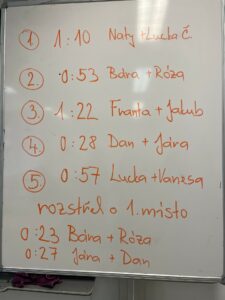 1. 1:10 Naty + Lucka Č.
2. 0:53 Bára + Róza
3. 1:22 Franta + Jakub
4. 0:28 Dan + Jára
5. 0:57 Lucka + Vanesa
rozstřel o 1. místo
0:23 Bára + Róza
0:27 Jára + Dan